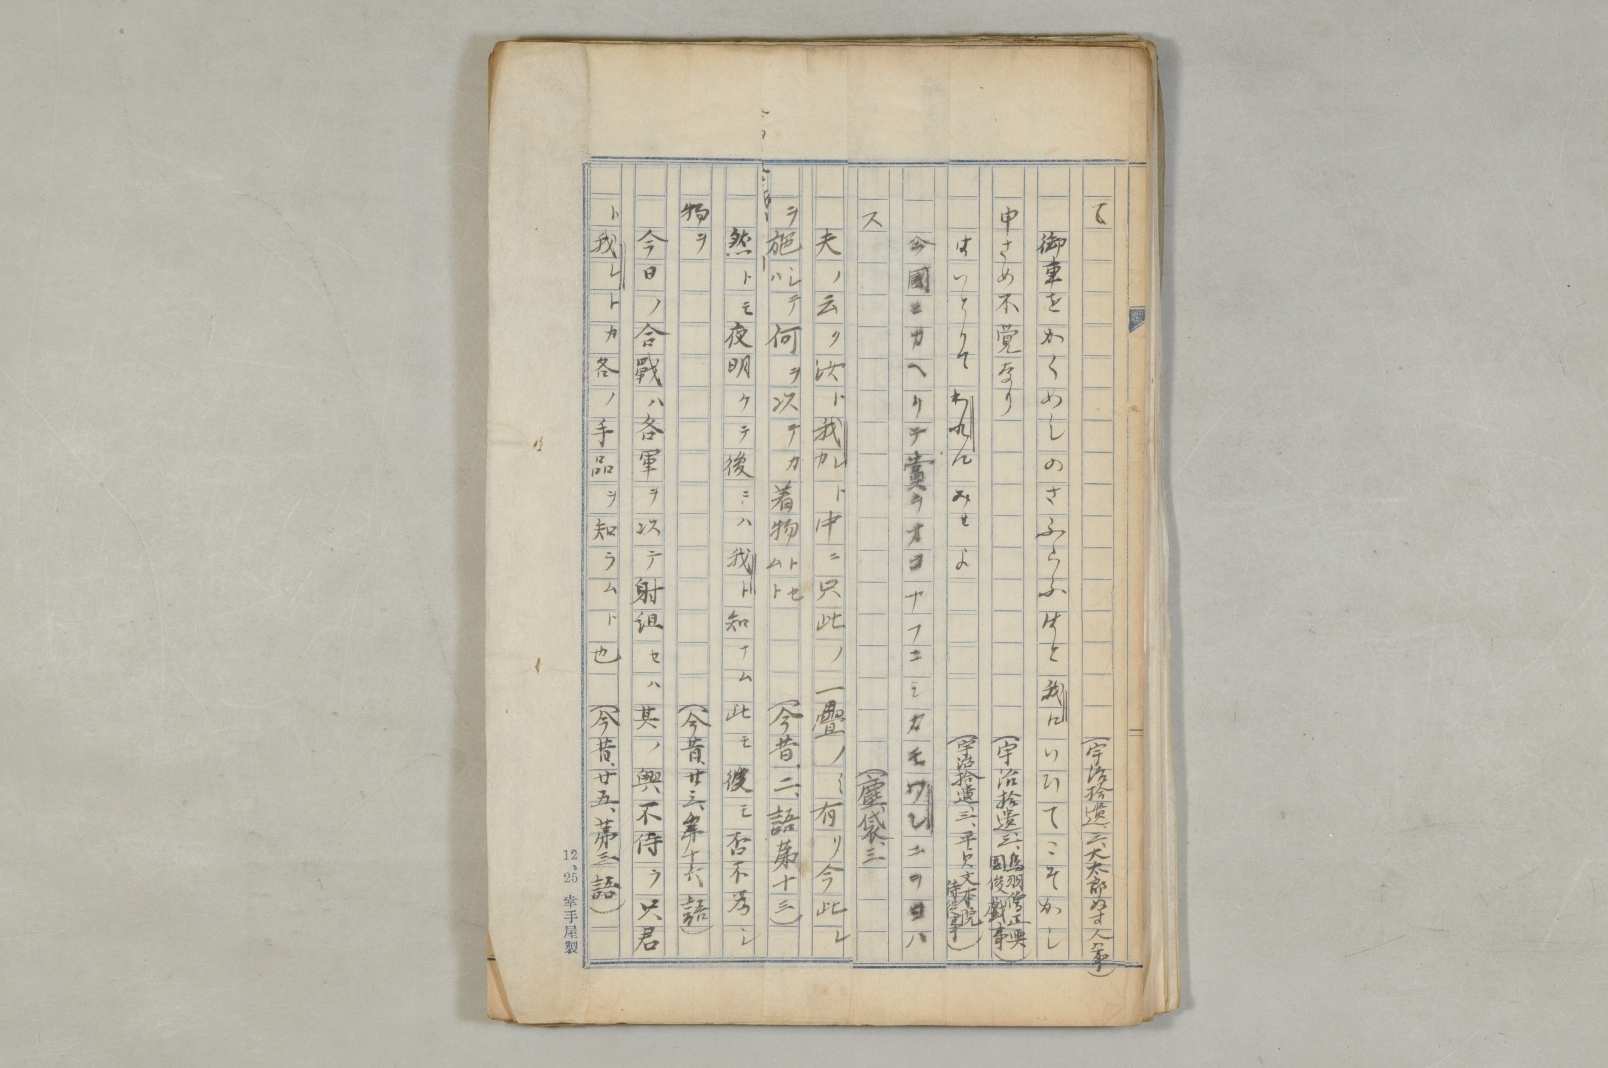 て　（宇治拾遺、三、大太郎ぬす人ノ事）
御車をかくめしのさふらふはと我にいひてこそかし
申さめ不覚なり　（宇治拾遺、三、鳥羽僧正与国俊戯事）
はいとりてわれにみせよ　（宇治拾遺、三、平貞文本院侍従事）
今国ヒカヘリテ賞ヲオコナフニミカモワレニヲヨハ
ス　（塵袋、三）
夫ノ云ク汝ト我カレト中ニ只此ノ一疊ノミ有リ今此レ
ヲ施ハシテ何ヲ以テカ着物トセムト　（今昔、二、語第十三）
然トモ夜明ケテ後ニハ我ト知ナム此モ彼モ否不爲シ
物ヲ　（今昔、廿三、第十六語）
今日ノ合戰ハ各軍ヲ以テ射組セハ其ノ興不侍ラ只君
ト我レトカ各ノ手品ヲ知ラムト也　（今昔、廿五、第三語）
12、25 幸手屋製